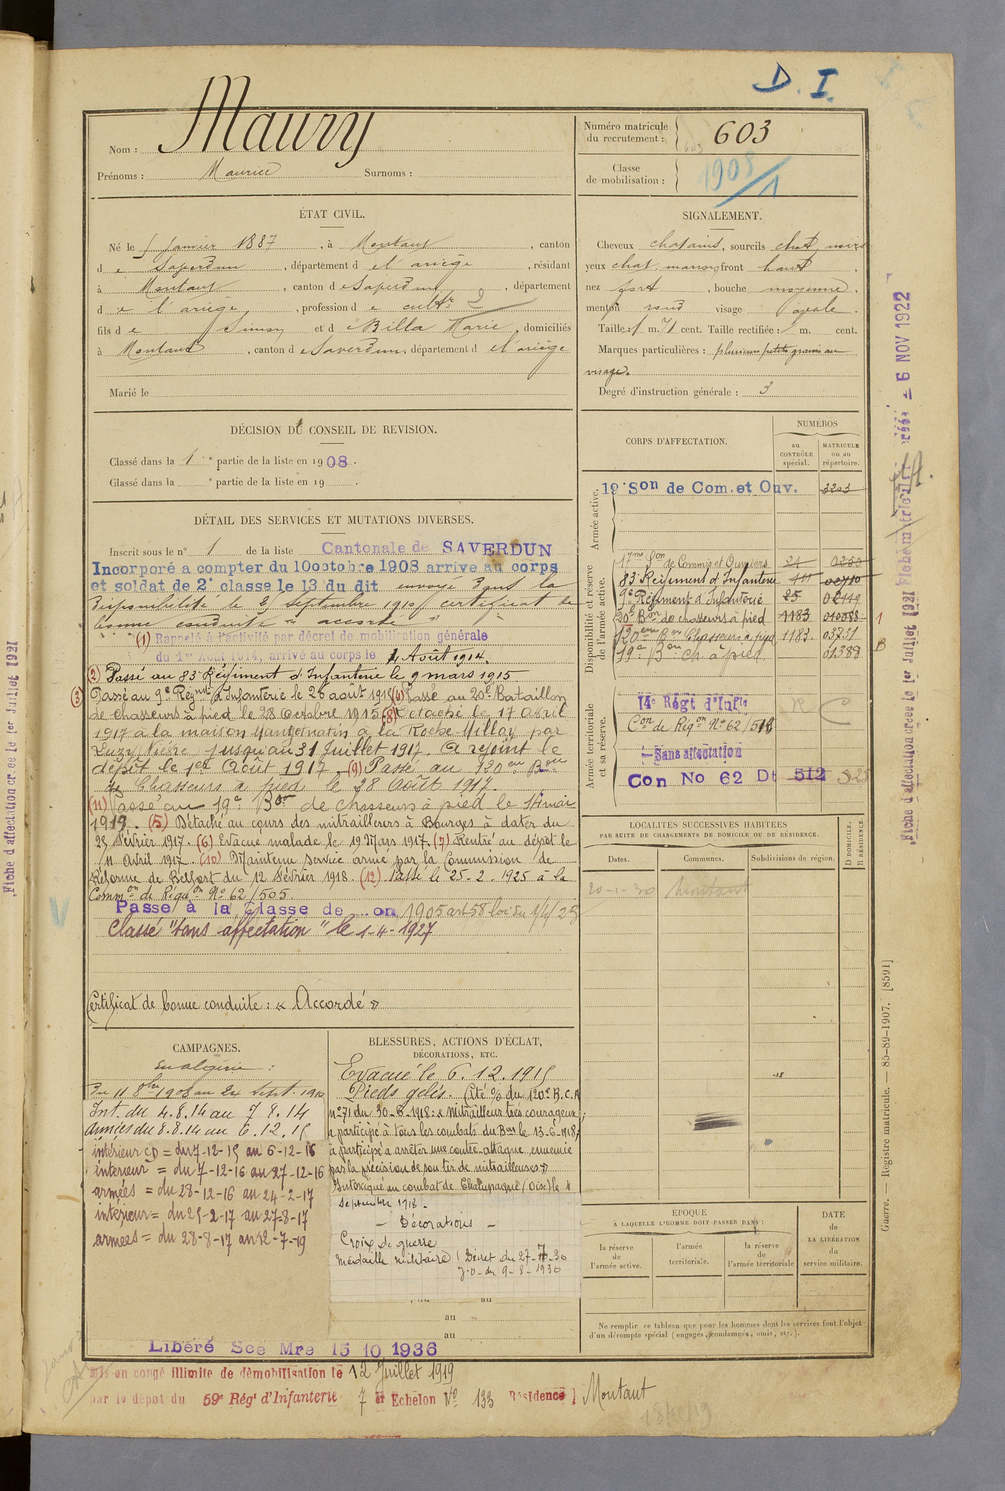 D. I.
Nom : Maury
Prénoms : Maurice Surnoms :
Numéro matricule du recrutement : 603
Classe de mobilisation : 1905/1
ÉTAT CIVIL.
Né le 5 janvier 1887, à Montaut, canton
de Saverdun, département de l'ariège, résidant
à Montaut, canton de Saverdun, département
de l'ariège, profession de cultr 2
fils de Simon et de Billa Marie, domiciliés
à Montaut, canton de Saverdun, département de l'ariège
Marié le
SIGNALEMENT.
Cheveux chatains, sourcils chat. noirs
yeux chat. marron front haut
nez fort, bouche moyenne,
menton rond visage ovale.
Taille : 1 m. 71 cent. Taille rectifiée : 1 m. cent.
Marques particulières : plusieurs petits grains au
visage.
Degré d'instruction générale : 3
DÉCISION DU CONSEIL DE REVISION.
Classé dans la 1e partie de la liste en 1908.
Classé dans la e partie de la liste en 19 .
DÉTAIL DES SERVICES ET MUTATIONS DIVERSES.
Inscrit sous le n° 1 de la liste Cantonale de SAVERDUN
Incorporé a compter du 10 octobre 1908 arrive au corps
et soldat de 2e classe le 13 du dit envoyé dans la
disponibilité le 2 septembre 1910 certificat de
bonne conduite « accordé »
(1) Rappelé à l'activité par décret de mobilisation générale
du 1er Août 1914, arrivé au corps le 4 Août 1914.
(2) Passé au 83e Régiment d'Infanterie le 9 mars 1915
(3) Passé au 9e Regmt d'Infanterie le 26 août 1915 (4) Passé au 20e Bataillon
de Chasseurs à pied le 28 Octobre 1915 (8) Détaché le 17 Avril
1917 à la maison à la Roche-Millay par
Luzy Nièvre jusqu'au 31 Juillet 1917. A rejoint le
dépôt le 1er Août 1917. (9) Passé au 120eme Bon
de Chasseurs à pied le 28 Août 1917.
(11) Passé au 19e Bon de chasseurs à pied le 14 mai
1919. (5) Détaché au cours des mitrailleurs à Bourges à dater du
25 Février 1917. (6) Evacué malade le 19 Mars 1917. (7) Rentré au dépôt le
11 Avril 1917. (10) Maintenu service armé par la Commission de
Réforme de Belfort du 12 Février 1918. (12) Passé le 25-2-1925 à la
Common de Réqn N° 62/505.
Passé à la Classe de on 1905 art 58 loi du 1/4/23
Classé "sans affectation" le 1-4-1927
Certificat de bonne conduite : « Accordé »
CORPS D'AFFECTATION.
NUMÉROS
au CONTRÔLE spécial.
MATRICULE ou au répertoire.
Armée active.
19e Son de Com. et Ouv. 3203
Disponibilité et réserve de l'armée active.
17me Son de Commis et Ouvriers 21 0280
83e Régiment d'Infanterie
9e Régiment d'Infanterie 25 02119
20e Bon de chasseurs à pied 1183 010088
120eme Bon Chasseurs à pied 1183 03721
19e Bon Ch. à pied 01389
B
Armée territoriale et sa réserve.
14e Régt d'Infie
Con de Réqon N° 62/512
Sans affectation
Con No 62 Dt 512 525
R C
LOCALITÉS SUCCESSIVES HABITÉES
PAR SUITE DE CHANGEMENTS DE DOMICILE OU DE RÉSIDENCE.
Dates. Communes. Subdivisions de région. D DOMICILE. R RÉSIDENCE.
20-1-30 Montaut
CAMPAGNES.
En algérie :
Du 11 8bre 1908 au 2 Sept. 1910
Int. du 4.8.14 au 7 8.14
Armées du 8.8.14 au 6.12.15
intérieur CD = du 7-12-15 au 6-12-16
interieur = du 7-12-16 au 27-12-16
armées = du 28-12-16 au 24-2-17
intérieur = du 25-2-17 au 27-8-17
armees = du 28-8-17 au 12-7-19
BLESSURES, ACTIONS D'ÉCLAT,
DÉCORATIONS, ETC.
Evacué le 6.12.1915
Pieds gelés. Cité % du 120e B.C.P.
n°71 du 30-6-1918: « Mitrailleur très courageux;
a participé à tous les combats du Bon le 13-6-1918,
a participé à arrêter une contre-attaque ennemie
par la précision de son tir de mitrailleuses »
Intoxiqué au combat de (Oise) le 4
Septembre 1918.
- Décorations -
Croix de guerre
médaille militaire (Décret du 27-7-30
J.O. du 9-8-1930
au
au
au
ÉPOQUE
À LAQUELLE L'HOMME DOIT PASSER DANS :
la réserve de l'armée active.
l'armée territoriale.
la réserve de l'armée territoriale
DATE de LA LIBÉRATION du service militaire.
Ne remplir ce tableau que pour les hommes dont les services font l'objet
d'un décompte spécial (engagés, condamnés, omis, etc.).
Libéré Sce Mre 15 10 1936
mis en congé illimité de démobilisation le 12 Juillet 1919
par le dépôt du 59e Régt d'Infanterie 7e Echelon N° 133 Résidence Montaut
Guerre. — Registre matricule. — 85-89-1907. [8591]
Fiche d'affectation créée le 1er Juillet 1921
Fiche matricule créée 6 NOV 1922
Fiche d'affectation créée le 1er Juillet 1921